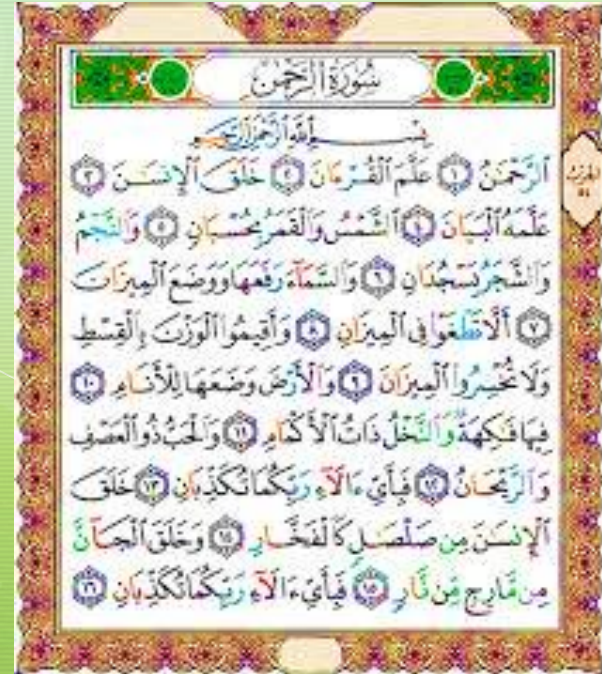 سُورَةُ الرَّحْمٰن
بِسْمِ اللَّهِ الرَّحْمَٰنِ الرَّحِيمِ
ٱلرَّحْمَٰنُ ١ عَلَّمَ ٱلْقُرْءَانَ ٢ خَلَقَ ٱلْإِنسَٰنَ ٣
عَلَّمَهُ ٱلْبَيَانَ ٤ ٱلشَّمْسُ وَٱلْقَمَرُ بِحُسْبَانٍ ٥ وَٱلنَّجْمُ
وَٱلشَّجَرُ يَسْجُدَانِ ٦ وَٱلسَّمَآءَ رَفَعَهَا وَوَضَعَ ٱلْمِيزَانَ
٧ أَلَّا تَطْغَوْا۟ فِى ٱلْمِيزَانِ ٨ وَأَقِيمُوا۟ ٱلْوَزْنَ بِٱلْقِسْطِ
وَلَا تُخْسِرُوا۟ ٱلْمِيزَانَ ٩ وَٱلْأَرْضَ وَضَعَهَا لِلْأَنَامِ ١٠
فِيهَا فَٰكِهَةٌ وَٱلنَّخْلُ ذَاتُ ٱلْأَكْمَامِ ١١ وَٱلْحَبُّ ذُو ٱلْعَصْفِ
وَٱلرَّيْحَانُ ١٢ فَبِأَىِّ ءَالَآءِ رَبِّكُمَا تُكَذِّبَانِ ١٣ خَلَقَ
ٱلْإِنسَٰنَ مِن صَلْصَٰلٍ كَٱلْفَخَّارِ ١٤ وَخَلَقَ ٱلْجَآنَّ
مِن مَّارِجٍ مِّن نَّارٍ ١٥ فَبِأَىِّ ءَالَآءِ رَبِّكُمَا تُكَذِّبَانِ ١٦